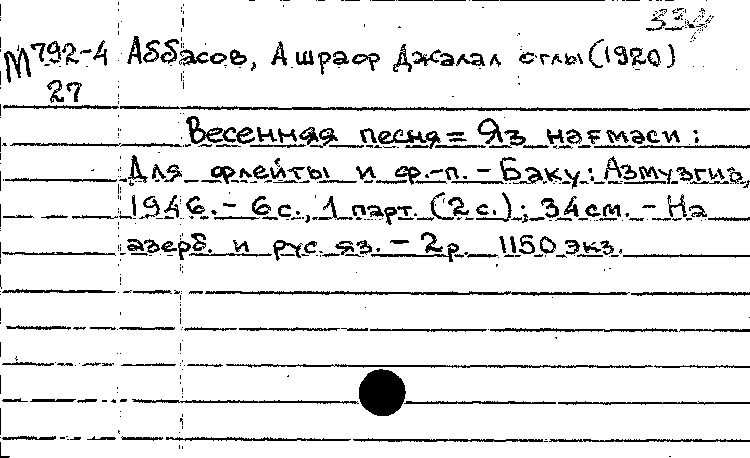 334
М792-4 Аббасов, Ашраф Джалал оглы (1920)
27
Весенняя песня = Яз нәғмәси :
Для флейты и ф.-п. - Баку: Азмузгиз,
1946. - 6 с., 1 парт. (2 с.); 34 см. - На
азерб. и рус. яз. - 2р. 1150 экз.